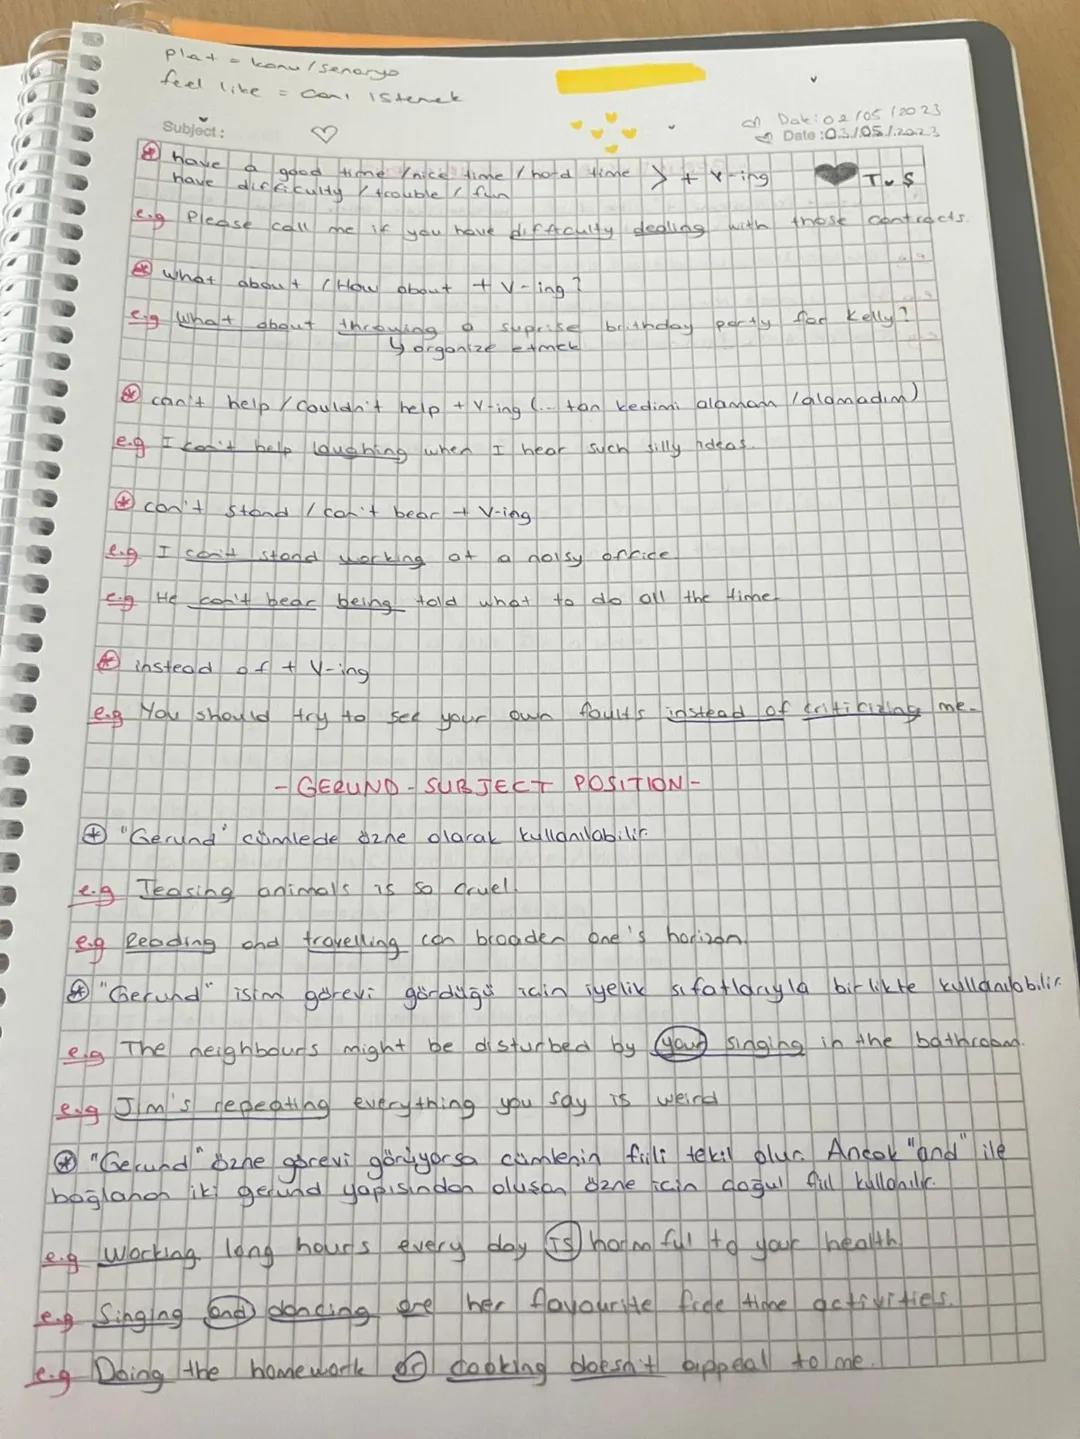 Plat = konu / senaryo
feel like = canı istemek
Subject:
Date: 02/05/2023
Date: 03/05/2023
have a good time / nice time / hard time > + V-ing
have difficulty / trouble / fun
e.g Please call me if you have difficulty dealing with those contracts.
what about / How about + V-ing?
e.g What about throwing a suprise brithday party for Kelly?
organize etmek
can't help / Couldn't help + V-ing (... tan kedimi alamam / alamadım)
e.g I can't help laughing when I hear such silly ideas.
can't stand / can't bear + V-ing
e.g I can't stand working at a noisy office.
e.g He can't bear being told what to do all the time.
instead of + V-ing
e.g You should try to see your own faults instead of criticizing me.
- GERUND - SUBJECT POSITION -
"Gerund" cümlede özne olarak kullanılabilir.
e.g Teasing animals is so cruel.
e.g Reading and travelling can broaden one's horizon.
"Gerund" isim görevi gördüğü için iyelik sıfatlarıyla birlikte kullanılabilir.
e.g The neighbours might be disturbed by your singing in the bathroom.
e.g Jim's repeating everything you say is weird
"Gerund" özne görevi görüyorsa cümlenin fiili tekil olur. Ancak "and" ile
bağlanan iki gerund yapısından oluşan özne için çoğul fiil kullanılır.
e.g Working long hours every day is harmful to your health.
e.g Singing and dancing are her favourite free time activities.
e.g Doing the homework or cooking doesn't appeal to me.